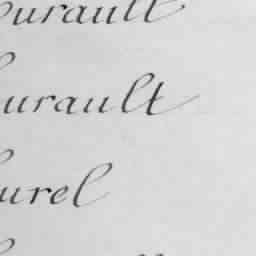 urault
urault
urel